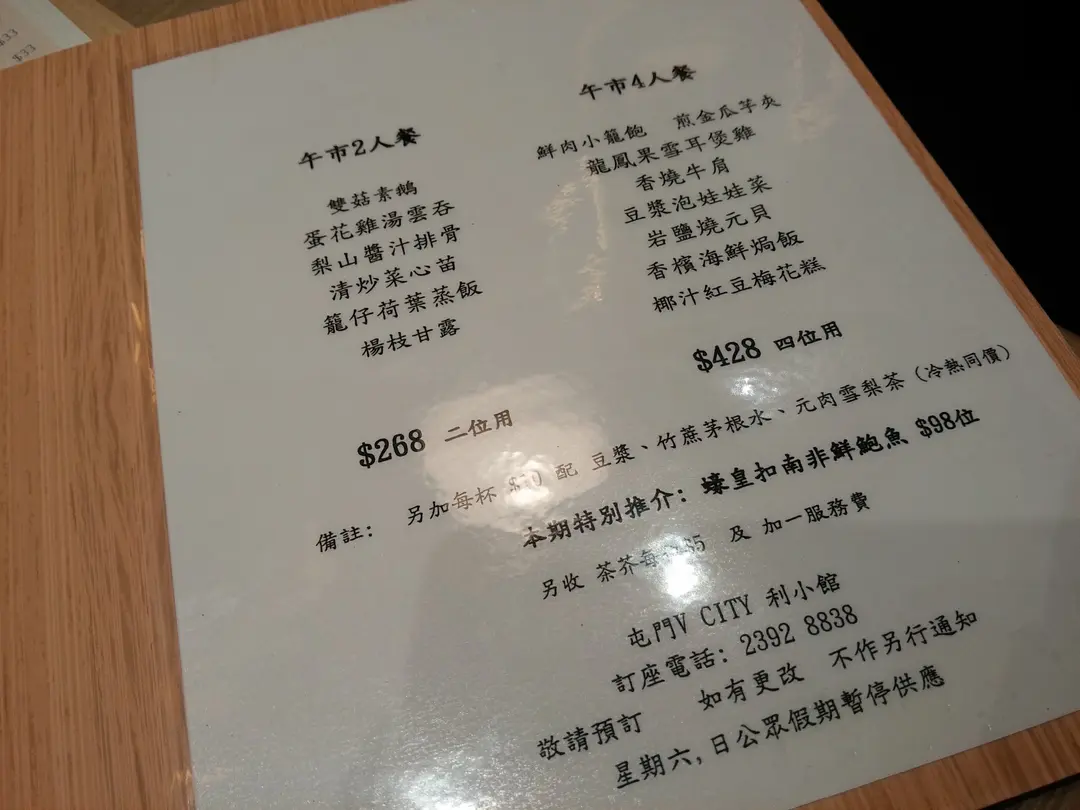 $33
$33
午市2人餐
雙菇素鵝
蛋花雞湯雲吞
梨山醬汁排骨
清炒菜心苗
籠仔荷葉蒸飯
楊枝甘露
$268 二位用
午市4人餐
鮮肉小籠飽 煎金瓜芋夾
龍鳳果雪耳煲雞
香燒牛肩
豆漿泡娃娃菜
岩鹽燒元貝
香檳海鮮焗飯
椰汁紅豆梅花糕
$428 四位用
備註: 另加每杯 配 豆漿、竹蔗茅根水、元肉雪梨茶 (冷熱同價)
本期特別推介: 壕皇扣南非鮮鮑魚 $98位
另收 茶芥每 及 加一服務費
屯門V CITY 利小館
訂座電話: 2392 8838
敬請預訂 如有更改 不作另行通知
星期六,日公眾假期暫停供應